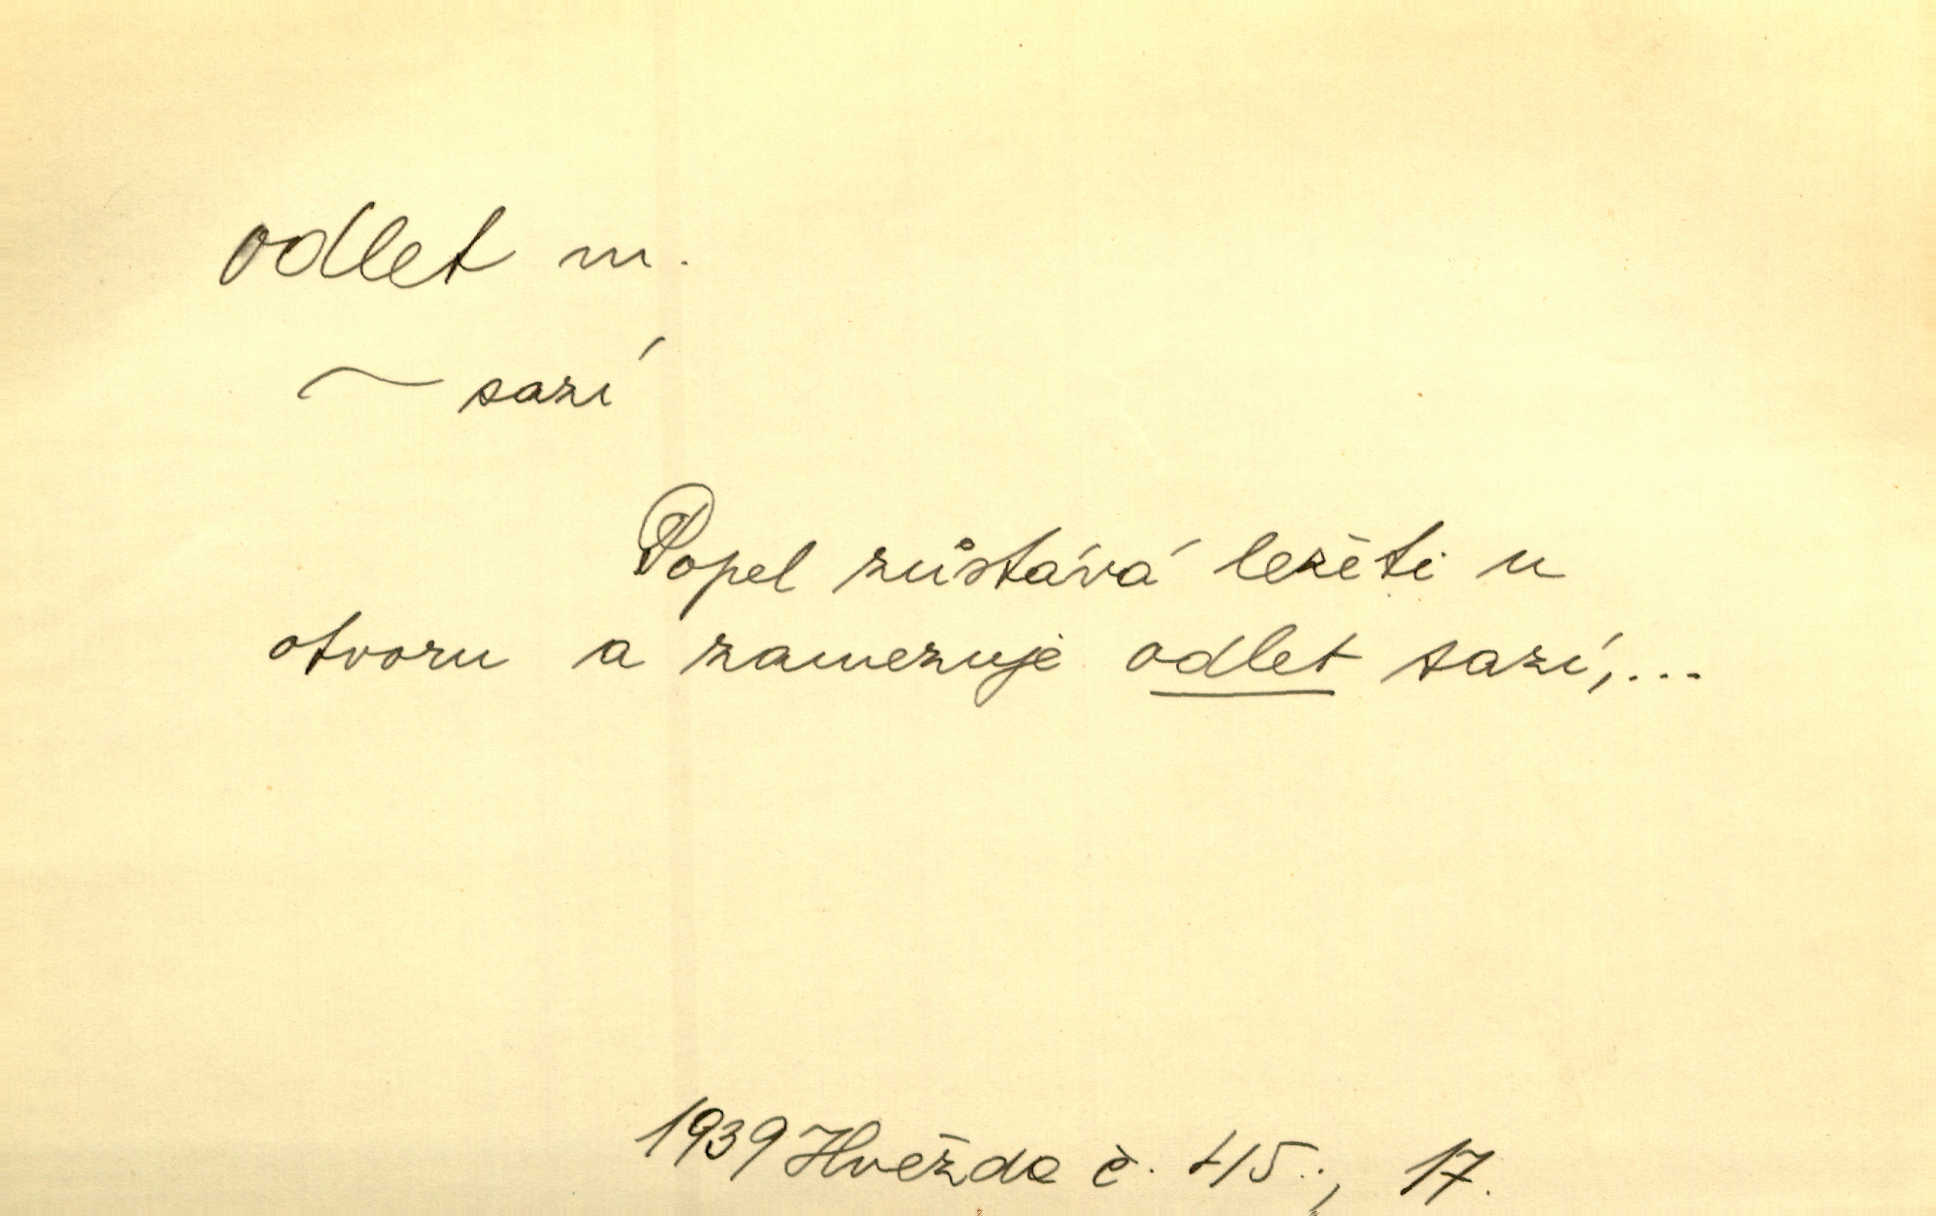 odlet m.
~ sazí
Popel zůstává ležeti u
otvoru a zamezuje odlet sazí,...
1939 Hvězda č. 715., 17.